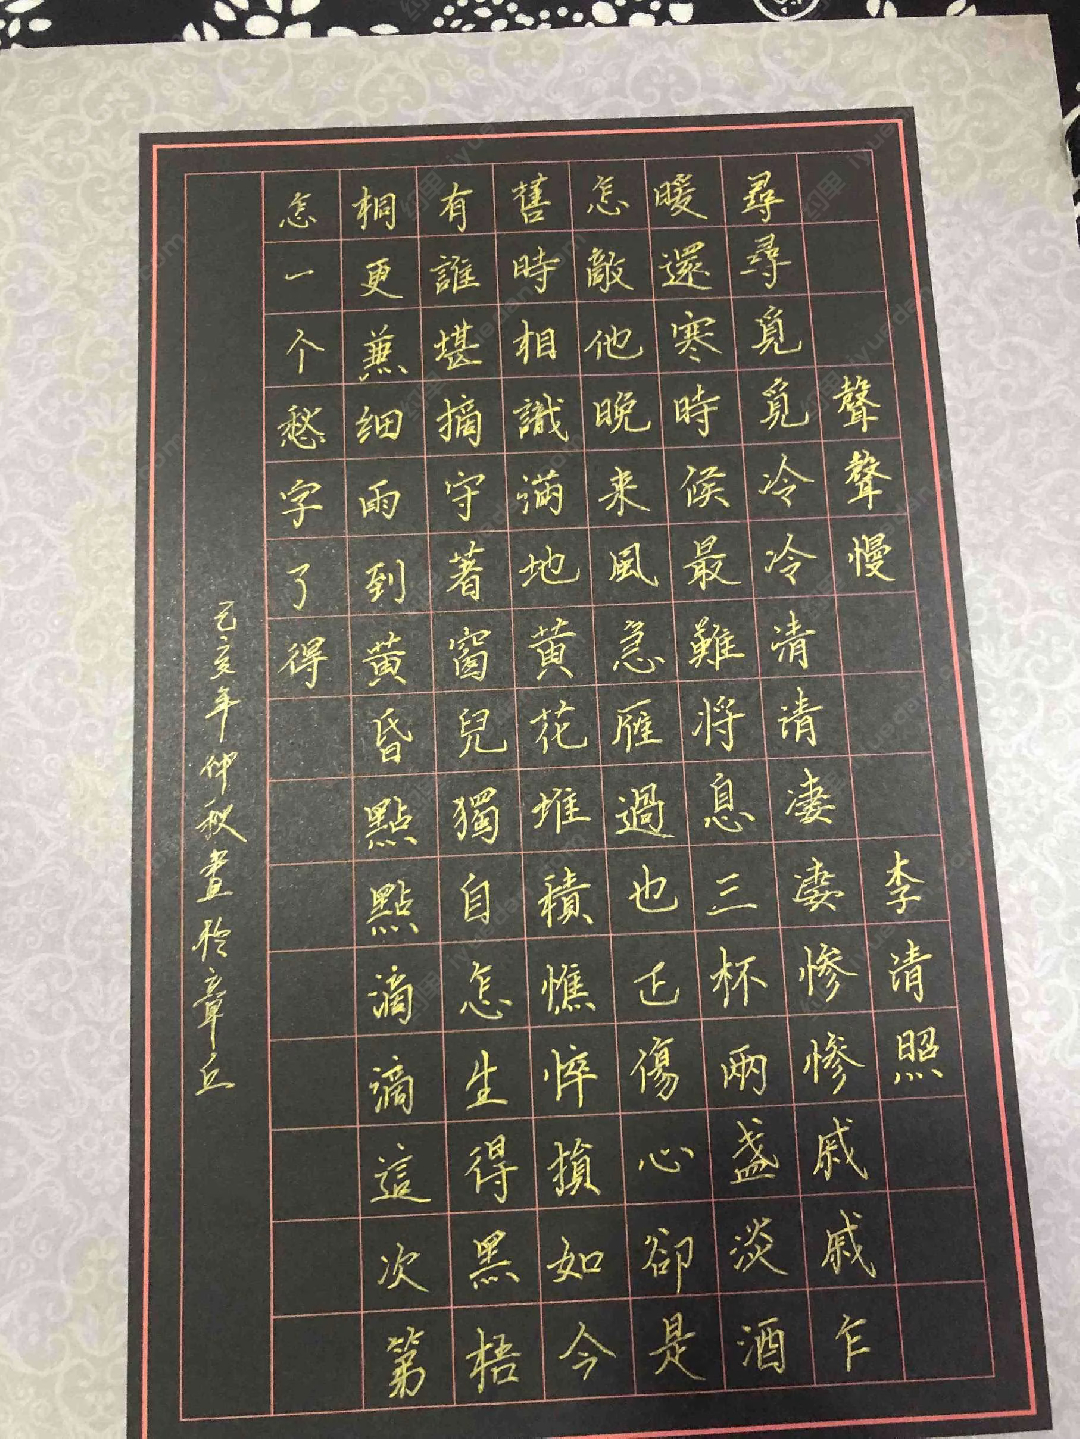 聲聲慢 李清照
尋尋覓覓冷冷清清凄凄惨惨戚戚乍
暖還寒時候最難将息三杯兩盏淡酒
怎敵他晚来風急雁過也正傷心卻是
舊時相識滿地黄花堆積憔悴損如今
有誰堪摘守著窗兒獨自怎生得黑梧
桐更兼细雨到黄昏點點滴滴這次第
怎一个愁字了得
己亥年仲秋書於章丘